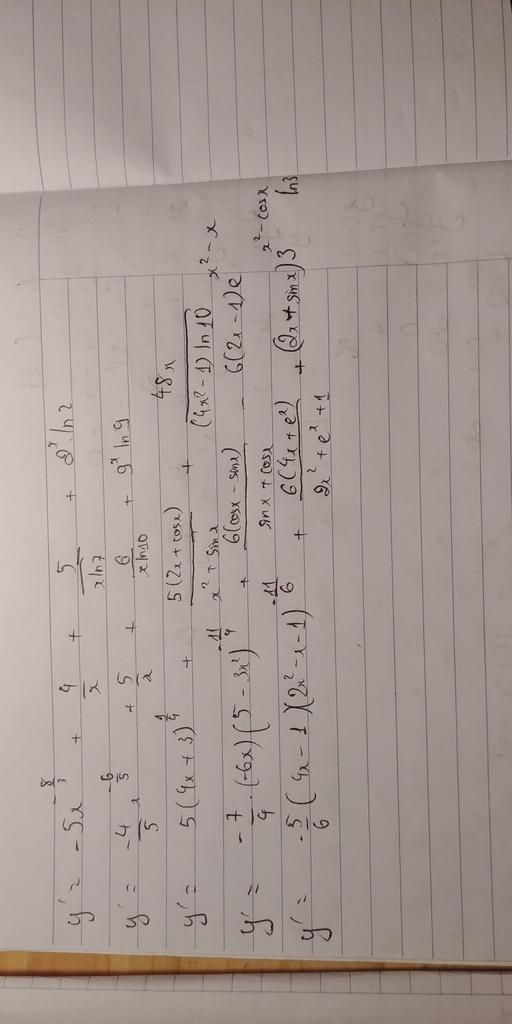 y' = -5x^{-8/3} + 4/x + 5/(x ln7) + 2^x . ln 2
y' = -4/5 x^{-6/5} + 5/x + 6/(x ln10) + 9^x ln 9
y' = 5(4x + 3)^{1/4} + 5(2x + cosx)/(x^2 + sinx) + 48x/((4x^2 - 1) ln 10)
y' = -7/4 . (-6x)(5 - 3x^2)^{-11/4} + 6(cosx - sinx)/(sinx + cosx) - 6(2x - 1)e^{x^2 - x}
y' = -5/6 (4x - 1)(2x^2 - x - 1)^{-11/6} + 6(4x + e^x)/(2x^2 + e^x + 1) + (2x + sinx)3^{x^2 - cosx} ln3